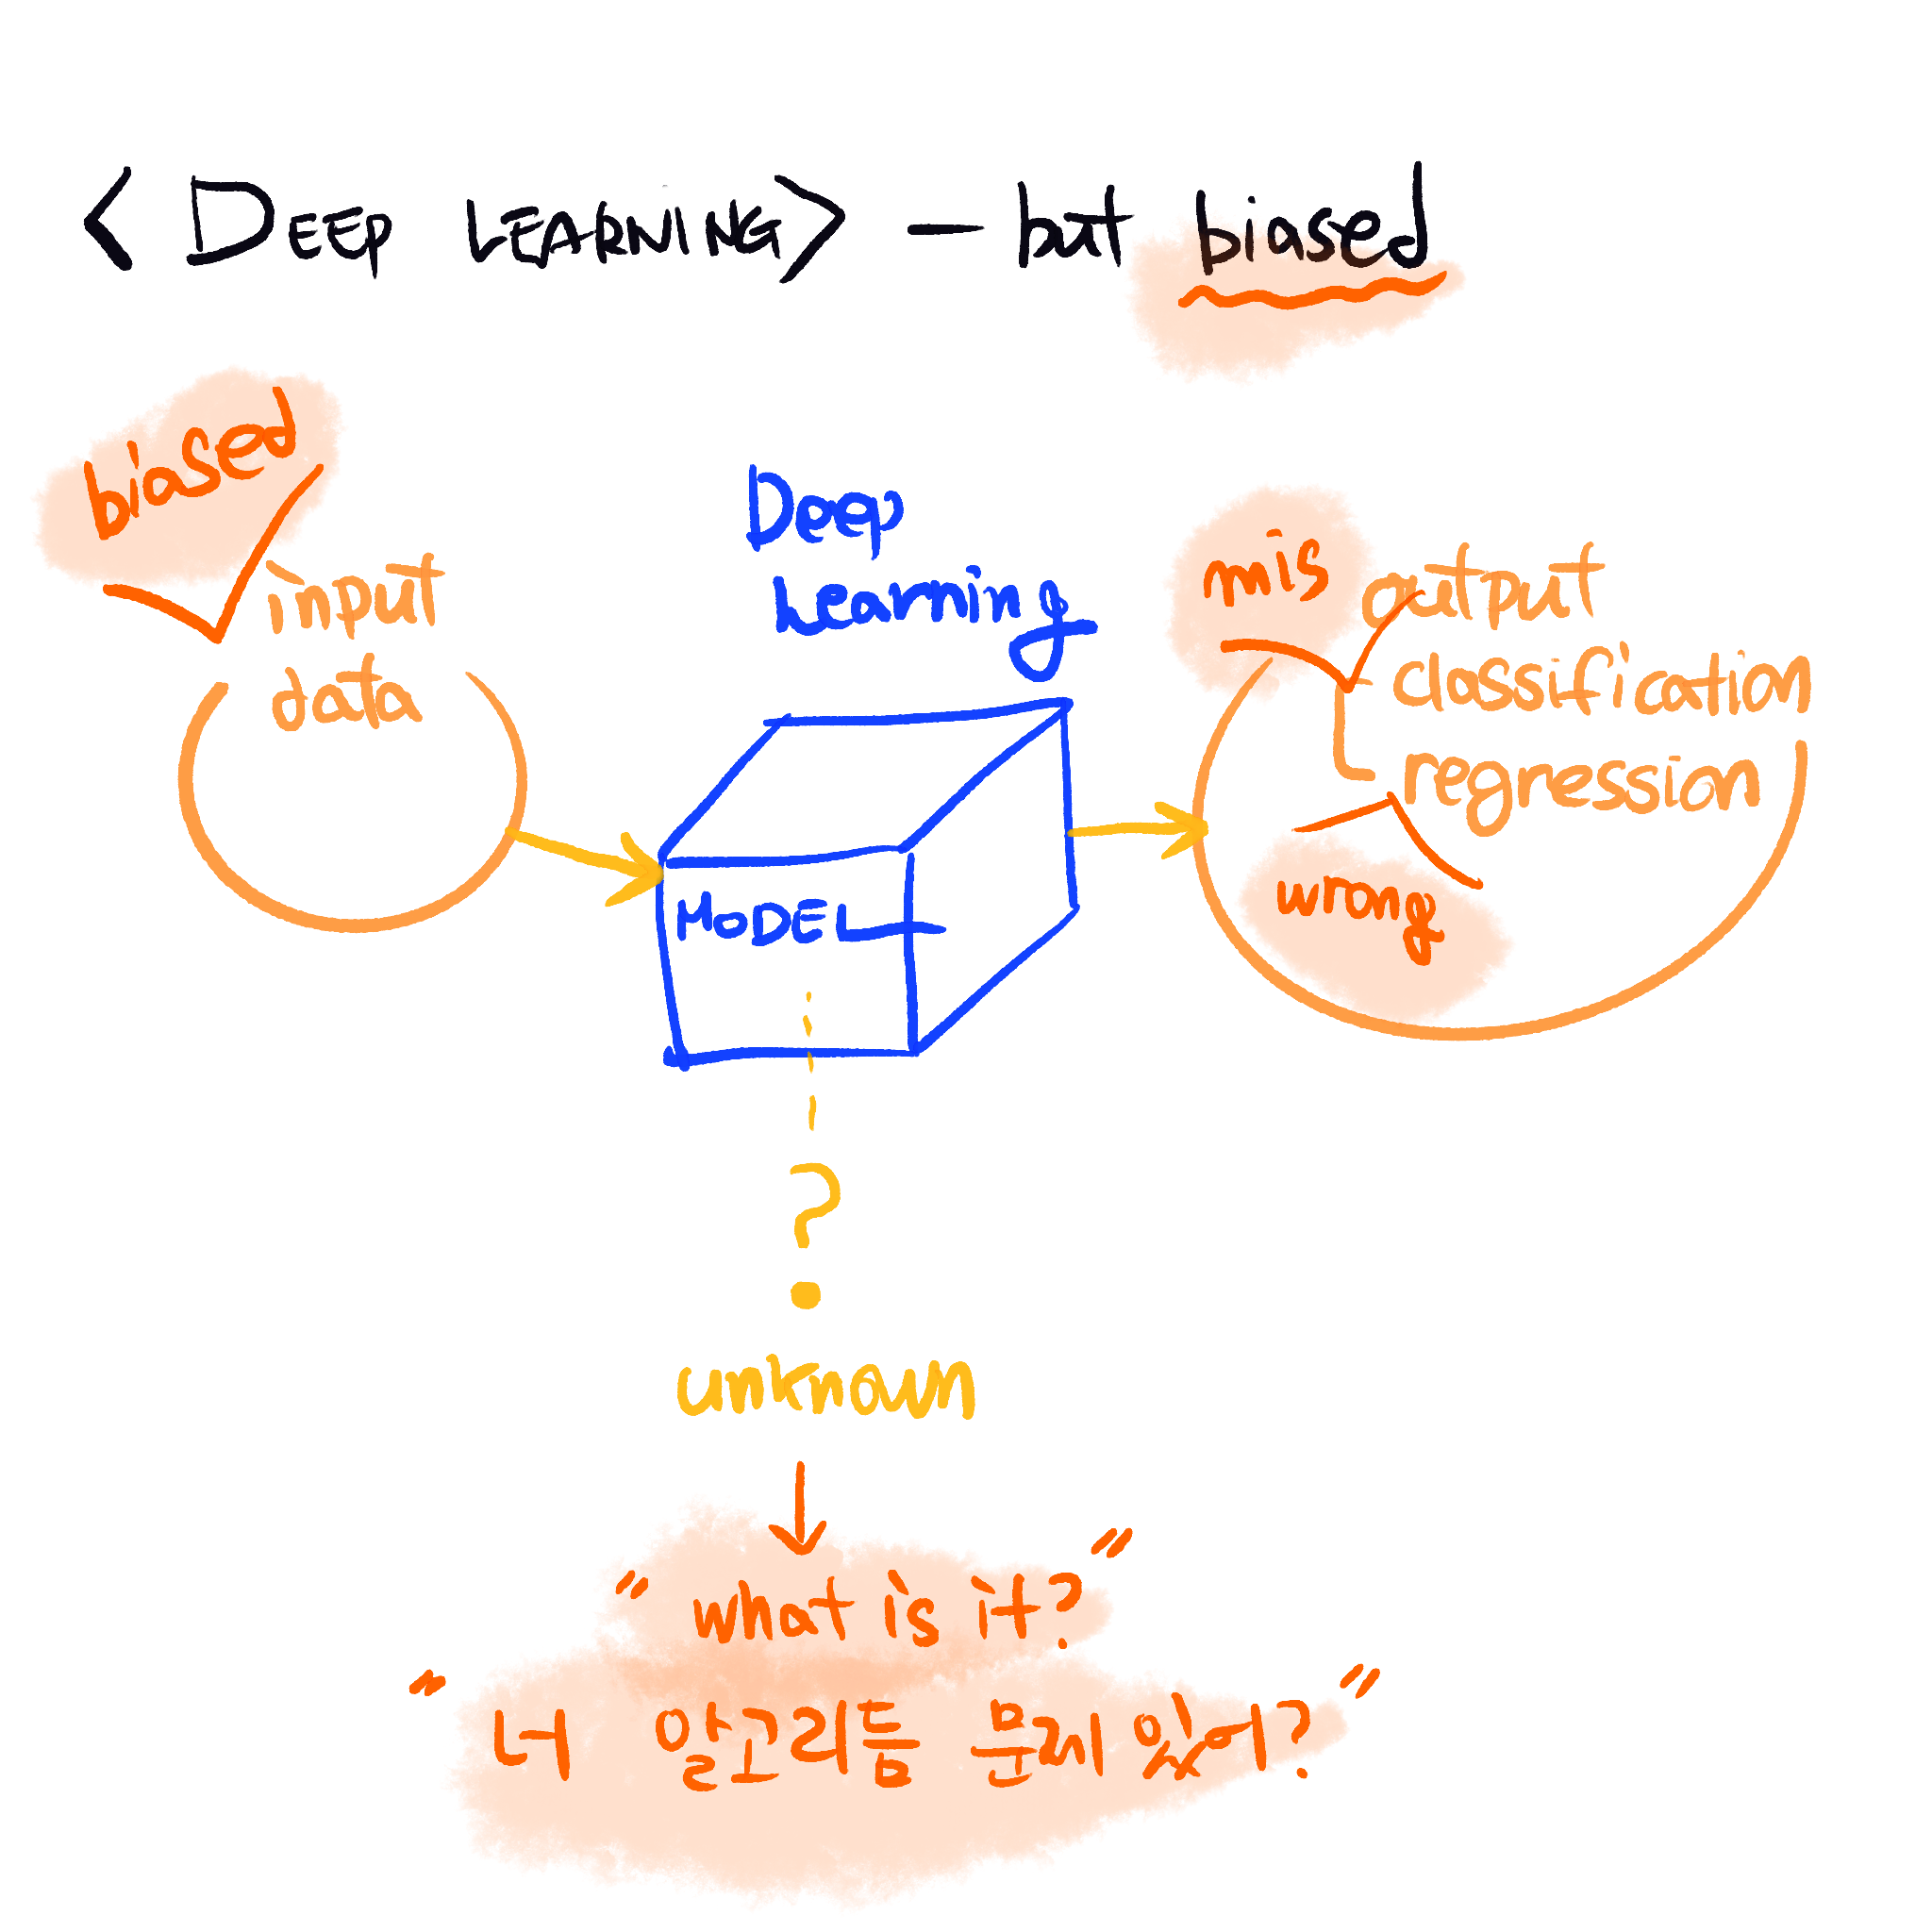 < DEEP LEARNING> - but biased
biased
input
data
Deep
Learning
MODEL
mis
output
classification
regression
wrong
?
unknown
"what is it?"
"너 알고리듬 문제 있어?"